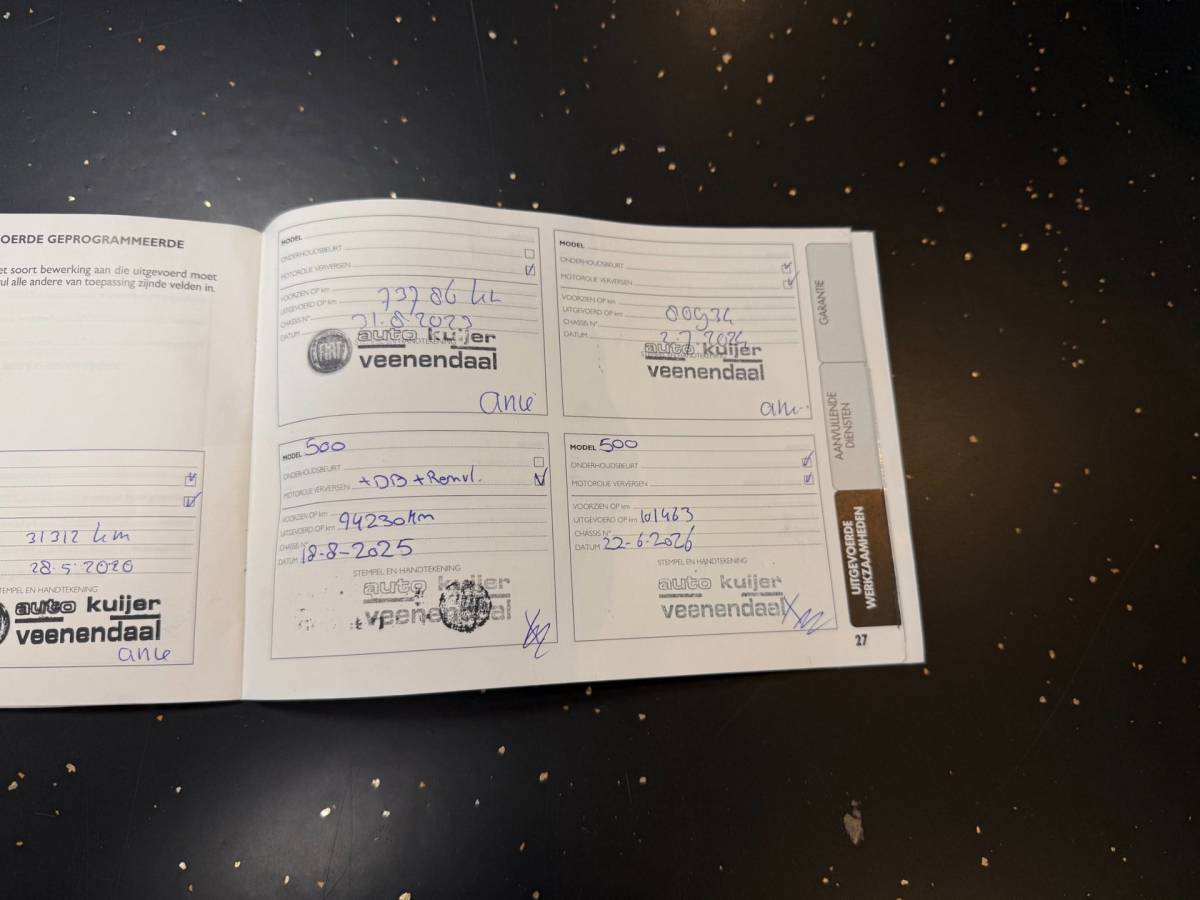 OERDE GEPROGRAMMEERDE
et soort bewerking aan die uitgevoerd moet
ul alle andere van toepassing zijnde velden in.
31312 km
28.5.2020
TEMPEL EN HANDTEKENING
auto kuijer
veenendaal
anke
MODEL
ONDERHOUDSBEURT
MOTOROLIE VERVERSEN
VOORZIEN OP km
UITGEVOERD OP km 73786 km
CHASSIS N° 31.8.2023
DATUM
FIAT
auto kuijer
veenendaal
anke
MODEL
ONDERHOUDSBEURT
MOTOROLIE VERVERSEN
VOORZIEN OP km
UITGEVOERD OP km
CHASSIS N°
DATUM
auto kuijer
veenendaal
MODEL 500
ONDERHOUDSBEURT
MOTOROLIE VERVERSEN +DB + Remvl.
VOORZIEN OP km
UITGEVOERD OP km 94230km
CHASSIS N°
DATUM 18-8-2025
STEMPEL EN HANDTEKENING
auto kuijer
veenendaal
MODEL 500
ONDERHOUDSBEURT
MOTOROLIE VERVERSEN
VOORZIEN OP km
UITGEVOERD OP km 101463
CHASSIS N°
DATUM 22-6-2026
STEMPEL EN HANDTEKENING
auto kuijer
veenendaal
GARANTIE
AANVULLENDE
DIENSTEN
UITGEVOERDE
WERKZAAMHEDEN
27